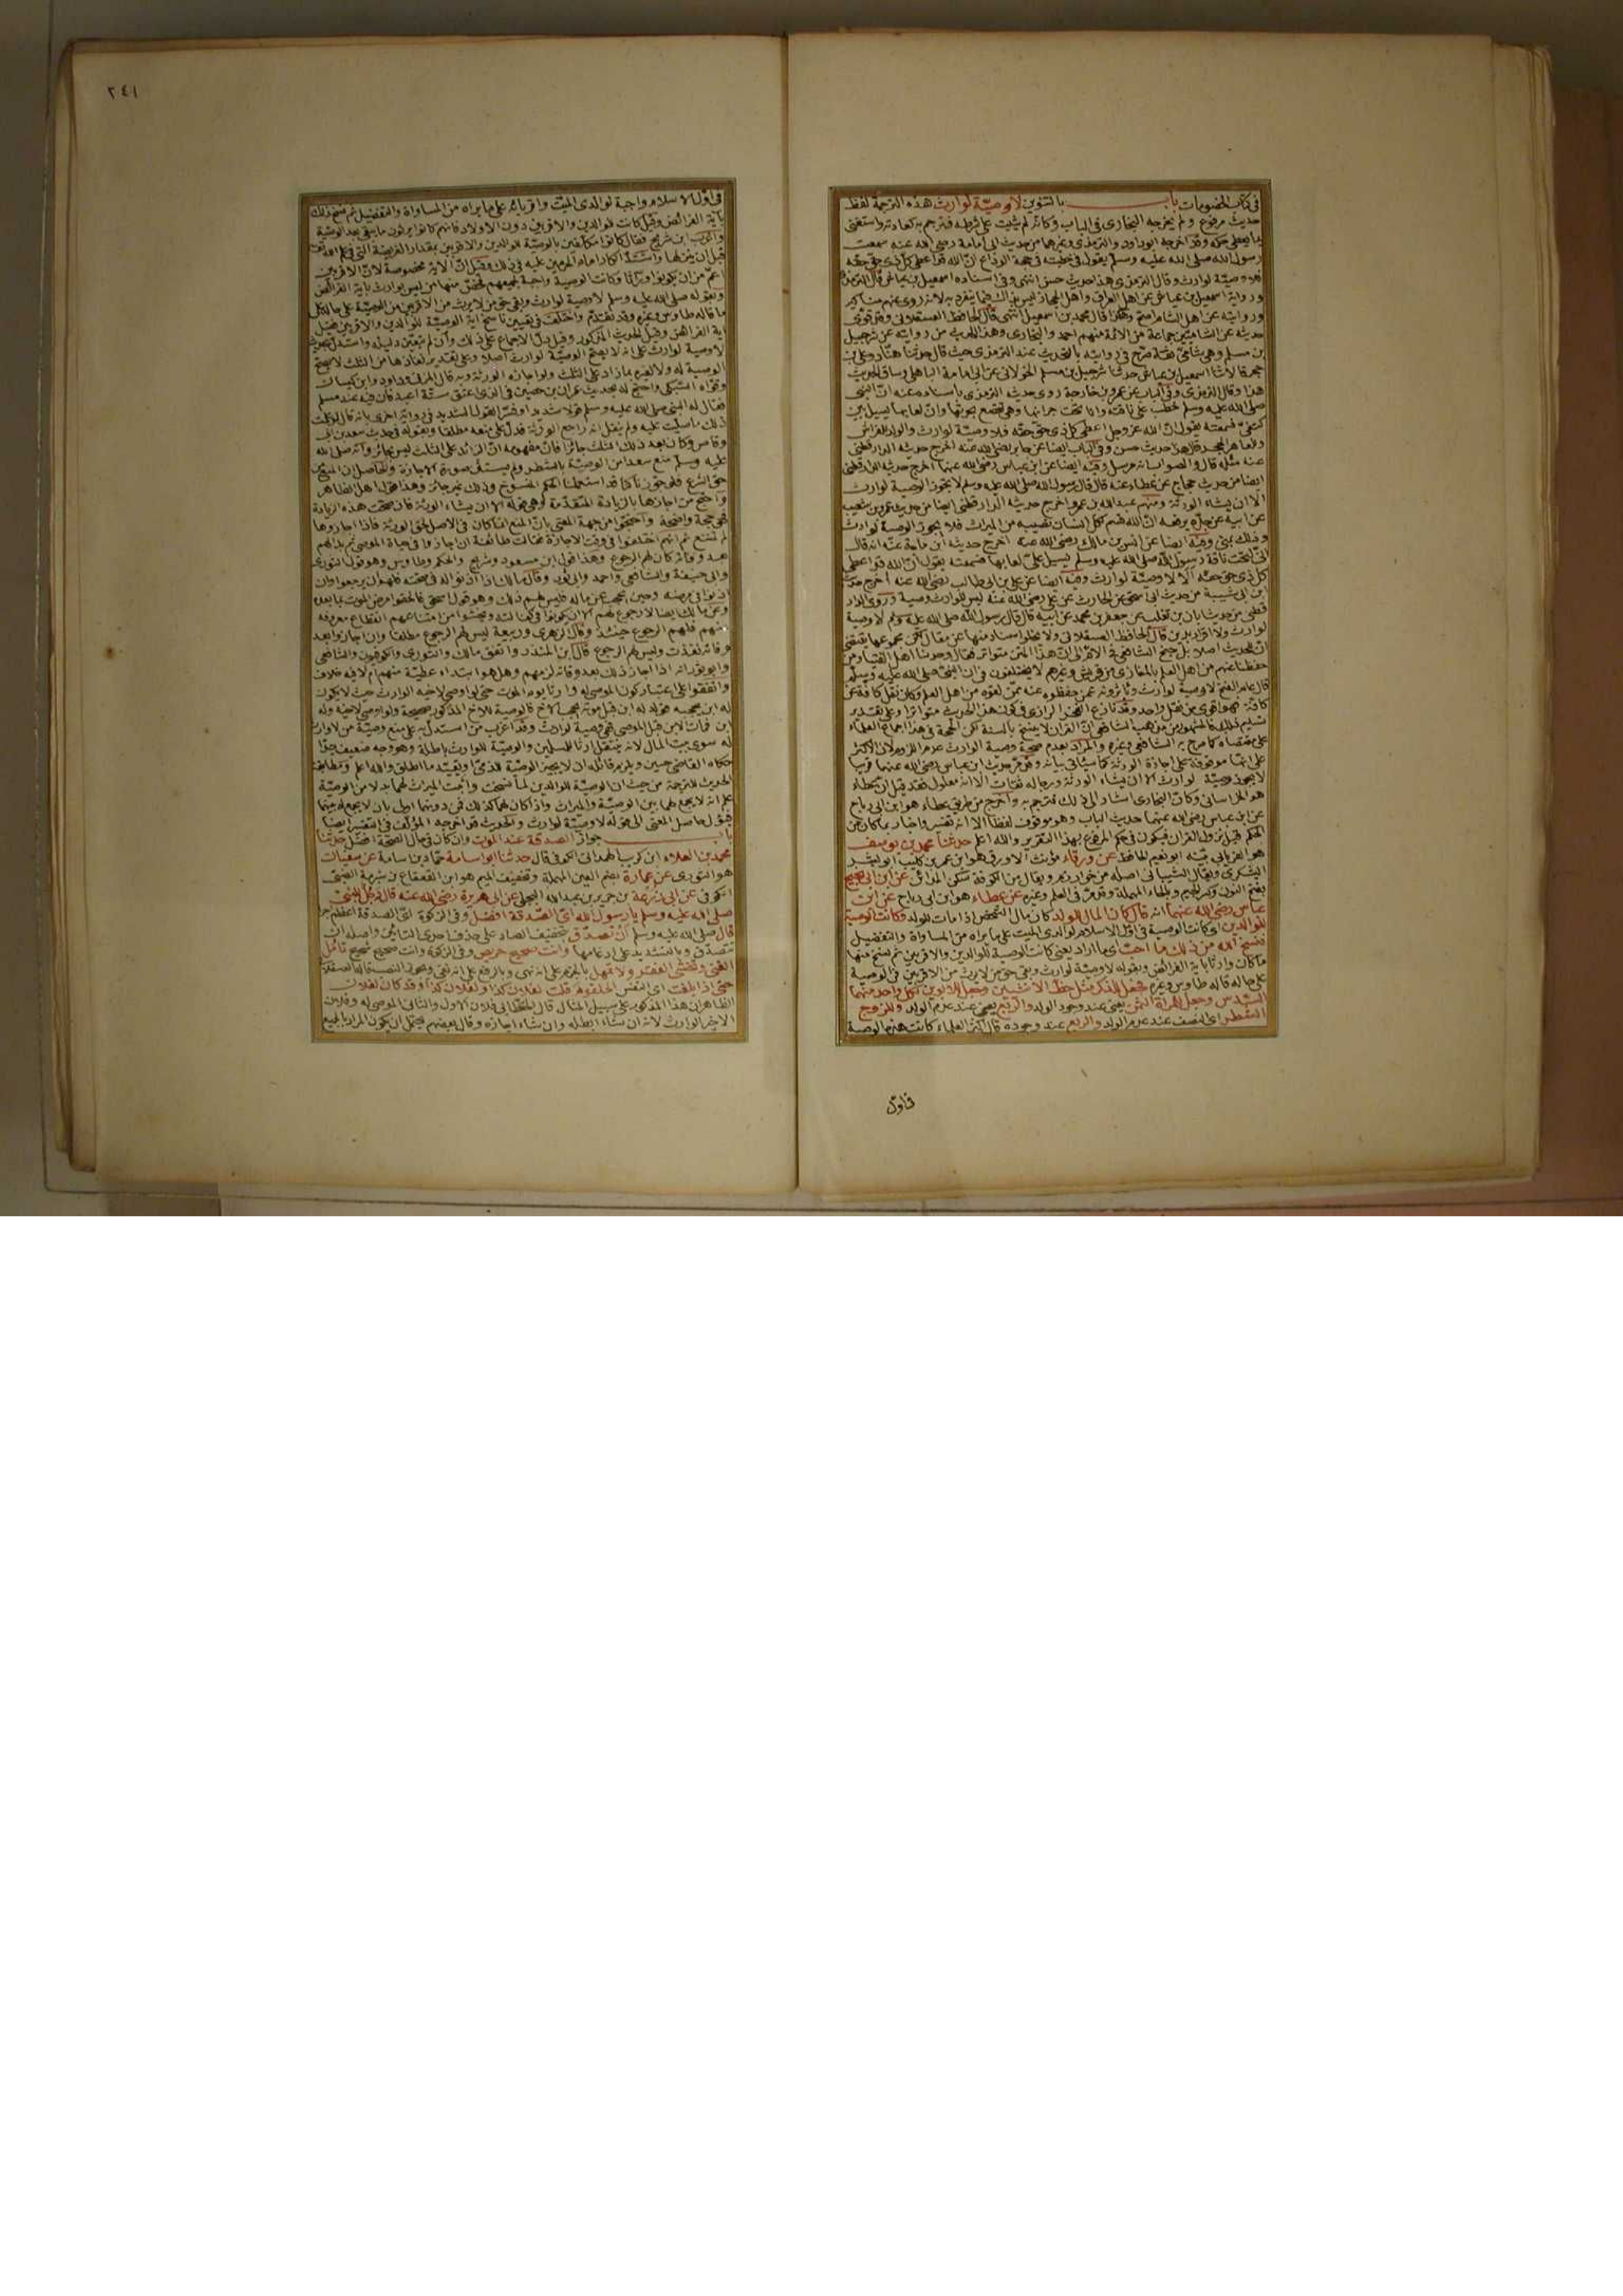 في كتاب الخصومات باب بالتنوين لا وصية لوارث هذه الترجمة لفظ
حديث مرفوع ولم يخرجه البخاري في الباب وكانه لم يثبت على شرطه فترجم به كعادته واستغنى
بما يعطي حكمه وقد اخرجه ابو داود والترمذي وغيرهما من حديث ابي امامة رضي الله عنه سمعت
رسول الله صلى الله عليه وسلم يقول في خطبته في حجة الوداع ان الله قد اعطى كل ذي حق حقه
فلا وصية لوارث وقال الترمذي هذا حديث حسن انتهى وفي اسناده اسمعيل بن عياش قال الترمذي
ورواية اسمعيل بن عياش عن اهل العراق واهل الحجاز ليس بذاك فيما ينفرد به لانه روى عنهم مناكير
وروايته عن اهل الشام اصح وهكذا قال محمد بن اسمعيل انتهى قال الحافظ العسقلاني وقد قوى
حديثه عن الشاميين جماعة من الائمة منهم احمد والبخاري وهذا الحديث من روايته عن شرحبيل
بن مسلم وهو شامي ثقة صرح في روايته بالتحديث عند الترمذي حيث قال حدثنا هناد وعلي بن
حجر قالا ثنا اسمعيل بن عياش حدثنا شرحبيل بن مسلم الخولاني عن ابي امامة الباهلي وساق الحديث
هذا وقال الترمذي وفي الباب عن عمرو بن خارجة روى حديثه الترمذي باسناده عنه ان النبي
صلى الله عليه وسلم خطب على ناقته وانا تحت جرانها وهي تقصع بجرتها وان لعابها يسيل بين
كتفي فسمعته يقول ان الله عز وجل اعطى كل ذي حق حقه فلا وصية لوارث والولد للفراش
وللعاهر الحجر قال هذا حديث حسن وفي الباب ايضا عن جابر رضي الله عنه اخرج حديثه الدارقطني
عنه مثله قال والصواب انه مرسل وفيه ايضا عن ابن عباس رضي الله عنهما اخرج حديثه الدارقطني
ايضا من حديث حجاج عن عطاء عنه قال قال رسول الله صلى الله عليه وسلم لا يجوز الوصية لوارث
الا ان يشاء الورثة ومنهم عبد الله بن عمرو اخرج حديثه الدارقطني ايضا من حديث عمرو بن شعيب
عن ابيه عن جده يرفعه ان الله قسم لكل انسان نصيبه من الميراث فلا يجوز الوصية لوارث
وذلك بمنى وفيه ايضا عن انس بن مالك رضي الله عنه اخرج حديثه ابن ماجة عنه انه قال
اني لتحت ناقة رسول الله صلى الله عليه وسلم يسيل علي لعابها فسمعته يقول ان الله قد اعطى
كل ذي حق حقه الا لا وصية لوارث وفيه ايضا عن علي بن ابي طالب رضي الله عنه اخرج حديثه
ابن ابي شيبة من حديث ابي اسحق عن الحارث عن علي رضي الله عنه ليس للوارث وصية وروى الدار
قطني من حديث ابان بن تغلب عن جعفر بن محمد عن ابيه قال قال رسول الله صلى الله عليه وسلم لا وصية
لوارث ولا اقرار بدين قال الحافظ العسقلاني ولا يخلو اسناد منها عن مقال لكن مجموعها يقتضي
ان للحديث اصلا بل جنح الشافعي في الام الى ان هذا المتن متواتر فقال وجدنا اهل الفتيا ومن
حفظنا عنهم من اهل العلم بالمغازي من قريش وغيرهم لا يختلفون في ان النبي صلى الله عليه وسلم
قال عام الفتح لا وصية لوارث ويأثرونه عمن حفظوه عنه ممن لقوه من اهل العلم وكان نقل كافة عن
كافة فهو اقوى من نقل واحد وقد نازع الفخر الرازي في كون هذا الحديث متواترا وعلى تقدير
تسليم ذلك فالمشهور من مذهب الشافعي ان القران لا ينسخ بالسنة لكن الحجة في هذا اجماع العلماء
على مقتضاه كما صرح به الشافعي وغيره والمراد بعدم صحة وصية الوارث عدم اللزوم لان الاكثر
على انها موقوفة على اجازة الورثة كما سيأتي بيانه وقد مر حديث ابن عباس رضي الله عنهما قريبا
لا يجوز وصية لوارث الا ان يشاء الورثة ورجاله ثقات الا انه معلول فقد قيل ان عطاء
هو الخراساني وكأن البخاري اشار الى ذلك فترجم به واخرج من طريق عطاء هو ابن ابي رباح
عن ابن عباس رضي الله عنهما حديث الباب وهو موقوف لفظا الا انه تفسير واخبار بما كان من
الحكم قبل نزول القران فيكون في حكم المرفوع بهذا التقرير والله اعلم حدثنا محمد بن يوسف
هو الفريابي عن ورقاء مؤنث الاورق هو ابن عمر بن كليب ابو بشر
اليشكري ويقال الشيباني اصله من خوارزم ويقال من الكوفة سكن المدائن عن ابن ابي نجيح
بفتح النون وكسر الجيم وبالحاء المهملة وقد مر في العلم وغيره عن عطاء هو ابن ابي رباح عن ابن
عباس رضي الله عنهما انه قال كان المال للولد كان مال الشخص اذا مات للولد وكانت الوصية
للوالدين اي كانت الوصية في اول الاسلام لوالدي الميت على ما يراه من المساواة والتفضيل
فنسخ الله من ذلك ما احب اي ما اراد يعني كانت الوصية للوالدين والاقربين ثم نسخ منها
ما كان وارثا باية الفرائض وبقوله لا وصية لوارث وبقي حق من لا يرث من الاقربين في الوصية
على حاله قاله طاوس وغيره فجعل للذكر مثل حظ الانثيين وجعل للابوين لكل واحد منهما
السدس وجعل للمرأة الثمن يعني عند وجود الولد والربع يعني عند عدم الولد وللزوج
الشطر اي النصف عند عدم الولد والربع عند وجوده قال اكثر العلماء كانت هذه الوصية
في اول
٢٤١
في اول الاسلام واجبة لوالدي الميت واقربائه على ما يراه من المساواة والتفضيل ثم نسخ ذلك
باية الفرائض وقيل كانت للوالدين والاقربين دون الاولاد فانهم كانوا يرثون ما يبقى بعد الوصية
واغرب ابن شريح فقال كانوا مكلفين بالوصية للوالدين والاقربين بمقدار الفريضة التي في علم الله
قبل ان ينزلها واشتد انكار امام الحرمين عليه في ذلك وقيل ان الاية مخصوصة لان الاقربين
اعم من ان يكونوا وراثا وكانت الوصية واجبة لجميعهم فخص منها من ليس بوارث باية الفرائض
وبقوله صلى الله عليه وسلم لا وصية لوارث وبقي حق من لا يرث من الاقربين من الوصية على حاله
ما قاله طاوس وغيره وقد تقدم واختلف في تعيين ناسخ اية الوصية للوالدين والاقربين فقيل
اية الفرائض وقيل الحديث المذكور وقيل دل الاجماع على ذلك وان لم يتعين دليله واستدل بحديث
لا وصية لوارث على انه لا يصح الوصية لوارث اصلا وعلى تقدير نفاذها من الثلث لا يصح
الوصية له ولا لغيره بما زاد على الثلث ولو اجازه الورثة وبه قال المزني وداود وابن كيسان
وقواه السبكي واحتج له بحديث عمران بن حصين في الذي اعتق ستة اعبد فان فيه عند مسلم
فقال له النبي صلى الله عليه وسلم قولا شديدا وفسر القول الشديد في رواية اخرى بانه قال لو علمت
ذلك ما صليت عليه ولم ينقل انه راجع الورثة فدل على منعه مطلقا وبقوله في حديث سعد بن ابي
وقاص وكان بعد ذلك الثلث جائزا فان مفهومه ان الزائد على الثلث ليس بجائز وانه صلى الله
عليه وسلم منع سعدا من الوصية بالشطر ولم يستثن صورة الاجازة والحاصل ان المنع
حق الشرع فلو جوزناه كنا قد استعملنا الحكم المنسوخ وذلك غير جائز وهذا قول اهل الظاهر
واحتج من اجازها بالزيادة المتقدمة وهي قوله الا ان يشاء الورثة فان صحت هذه الزيادة
فهي حجة واضحة واحتجوا من جهة المعنى بان المنع انما كان في الاصل لحق الورثة فاذا اجازوها
لم تمتنع ثم انهم اختلفوا في وقت الاجازة فقالت طائفة ان اجازوا في حياة الموصي ثم بدا لهم
بعد وفاته كان لهم الرجوع وهذا قول ابن مسعود وشريح والحكم وطاوس وهو قول الثوري
وابي حنيفة والشافعي واحمد وابي ثور وقال مالك اذا اذنوا له في صحته فلهم ان يرجعوا وان
اذنوا في مرضه وحين يحجب عن ماله فليس لهم ذلك وهو قول اسحق فالحقوا مرض الموت بما بعده
وعن مالك ايضا لا رجوع لهم الا ان يكونوا في كفالته ويخشوا من امتناعهم انقطاع معروفه
عنهم فلهم الرجوع حينئذ وقال الزهري وربيعة ليس لهم الرجوع مطلقا وان اجازوا بعد
وفاته نفذت وليس لهم الرجوع قال ابن المنذر واتفق مالك والثوري والكوفيون والشافعي
وابو ثور انه اذا اجاز ذلك بعد وفاته لزمهم وهل هو ابتداء عطية منهم ام لا فيه خلاف
واتفقوا على اعتبار كون الموصى له وارثا يوم الموت حتى لو اوصى لاخيه الوارث حيث لا يكون
له ابن يحجبه فولد له ابن قبل موته يحجب الاخ فالوصية للاخ المذكور صحيحة ولو اوصى لاخيه وله
ابن فمات الابن قبل الموصي فهي وصية لوارث وقد اغرب من استدل به على منع وصية من لا وارث
له سوى بيت المال لانه ينتقل ارثا للمسلمين والوصية للوارث باطلة وهو وجه ضعيف جدا
حكاه القاضي حسين ويلزم قائله ان لا يجيز الوصية للذمي او يقيد ما اطلق والله اعلم ومطابقة
الحديث للترجمة من حيث ان الوصية للوالدين لما نسخت واثبت الميراث لهما بدلا من الوصية
علم انه لا يجمع لهما بين الوصية والميراث واذا كان لهما كذلك فمن دونهما اولى بان لا يجمع له بينهما
فيؤل حاصل المعنى الى قوله لا وصية لوارث والحديث قد اخرجه المؤلف في التفسير ايضا
باب جواز الصدقة عند الموت وان كان في حال الصحة افضل حدثنا
محمد بن العلاء ابن كريب الهمداني الكوفي قال حدثنا ابو اسامة حماد بن اسامة عن سفيان
هو الثوري عن عمارة بضم العين المهملة وتخفيف الميم هو ابن القعقاع بن شبرمة الضبي
الكوفي عن ابي زرعة بن جرير بن عبد الله البجلي عن ابي هريرة رضي الله عنه قال قال رجل للنبي
صلى الله عليه وسلم يا رسول الله اي الصدقة افضل وفي الزكوة اي الصدقة اعظم اجرا
قال صلى الله عليه وسلم ان تصدق بتخفيف الصاد على حذف احدى التائين واصله ان
تتصدق وبالتشديد على ادغامها وانت صحيح حريص وفي الزكوة وانت صحيح شحيح تأمل
الغنى وتخشى الفقر ولا تمهل بالجزم على انه نهي وبالرفع على انه نفي ويجوز النصب
حتى اذا بلغت اي النفس الحلقوم قلت لفلان كذا ولفلان كذا وقد كان لفلان
الظاهر ان هذا المذكور على سبيل المثال قال الخطابي فلان الاول والثاني الموصى له وفلان
الاخير الوارث لانه ان شاء ابطله وان شاء اجازه وقال بعضهم يحتمل ان يكون المراد بالجميع